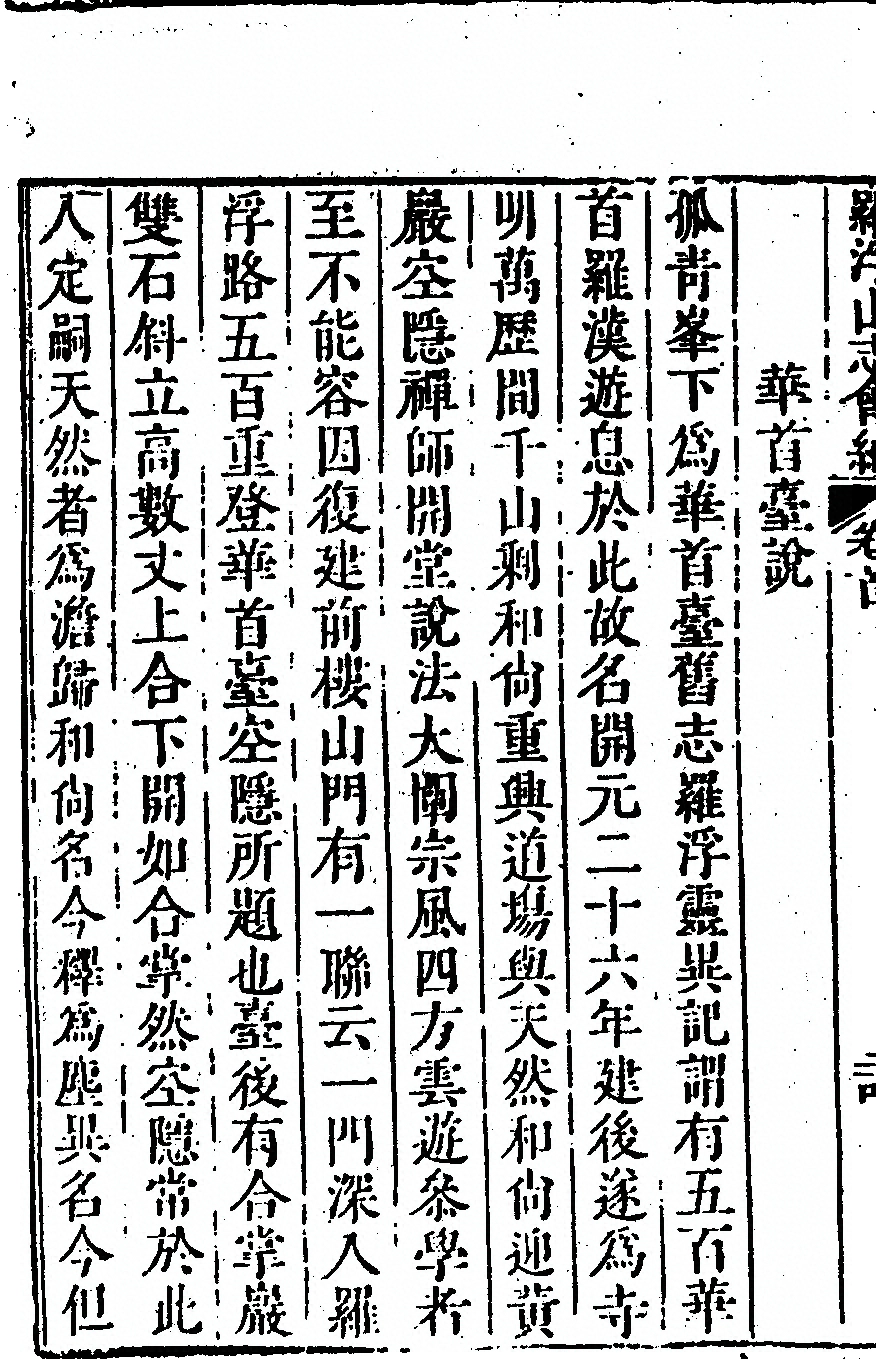 羅浮山志會編 卷首
華首臺說
孤青峯下爲華首臺舊志羅浮靈異記謂有五百華
首羅漢遊息於此故名開元二十六年建後遂爲寺
明萬歷間千山剩和尙重興道場與天然和尙迎黃
巖空隱禪師開堂說法大闡宗風四方雲遊叅學者
至不能容因復建前樓山門有一聯云一門深入羅
浮路五百重登華首臺空隱所題也臺後有合掌巖
雙石斜立高數丈上合下開如合掌然空隱常於此
入定嗣天然者爲澹歸和尙名今釋爲塵異名今但